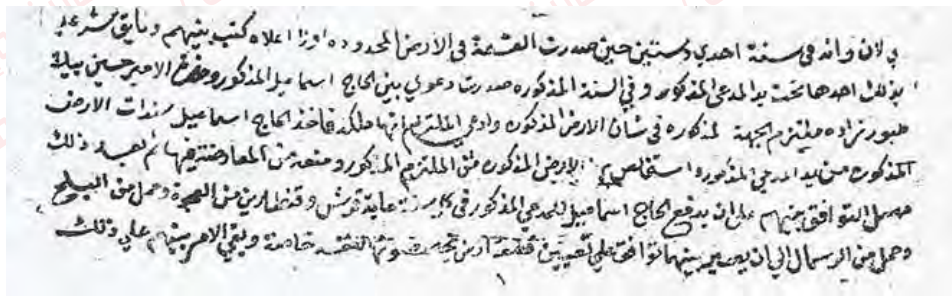 بى لان وانه فى سنة احدي وستين حين صدرت القسمة فى الارض المحدوده اوزا اعلاه كتب بينهم وثايق شرعيه
بذلك احدها تحت يد المدعى المذكور وفى السنة المذكوره صدرت دعوي بين الحاج اسماعيل المذكور الامير حسين بيك
طبوزاده ملتزم الجهة المذكوره فى شان الارض المذكوره وادعى الملتزم انها ملكه فاخذ الحاج اسماعيل سندات الارض
المذكوره من يد المدعى المذكوره استخلص الارض المذكوره من الملتزم المذكور ومنعه من المعارضة فيها ثم بعد ذلك
حصل التوافق بينهم على ان يدفع الحاج اسماعيل للمدعى المذكور فى كل سنة ماية قرش وقنطارين من العجوة وحمل من البلح
وحمل من الى ان يصير بينهما توافق على قطعة ارض خاصة وبقى الامر بينهم على ذلك